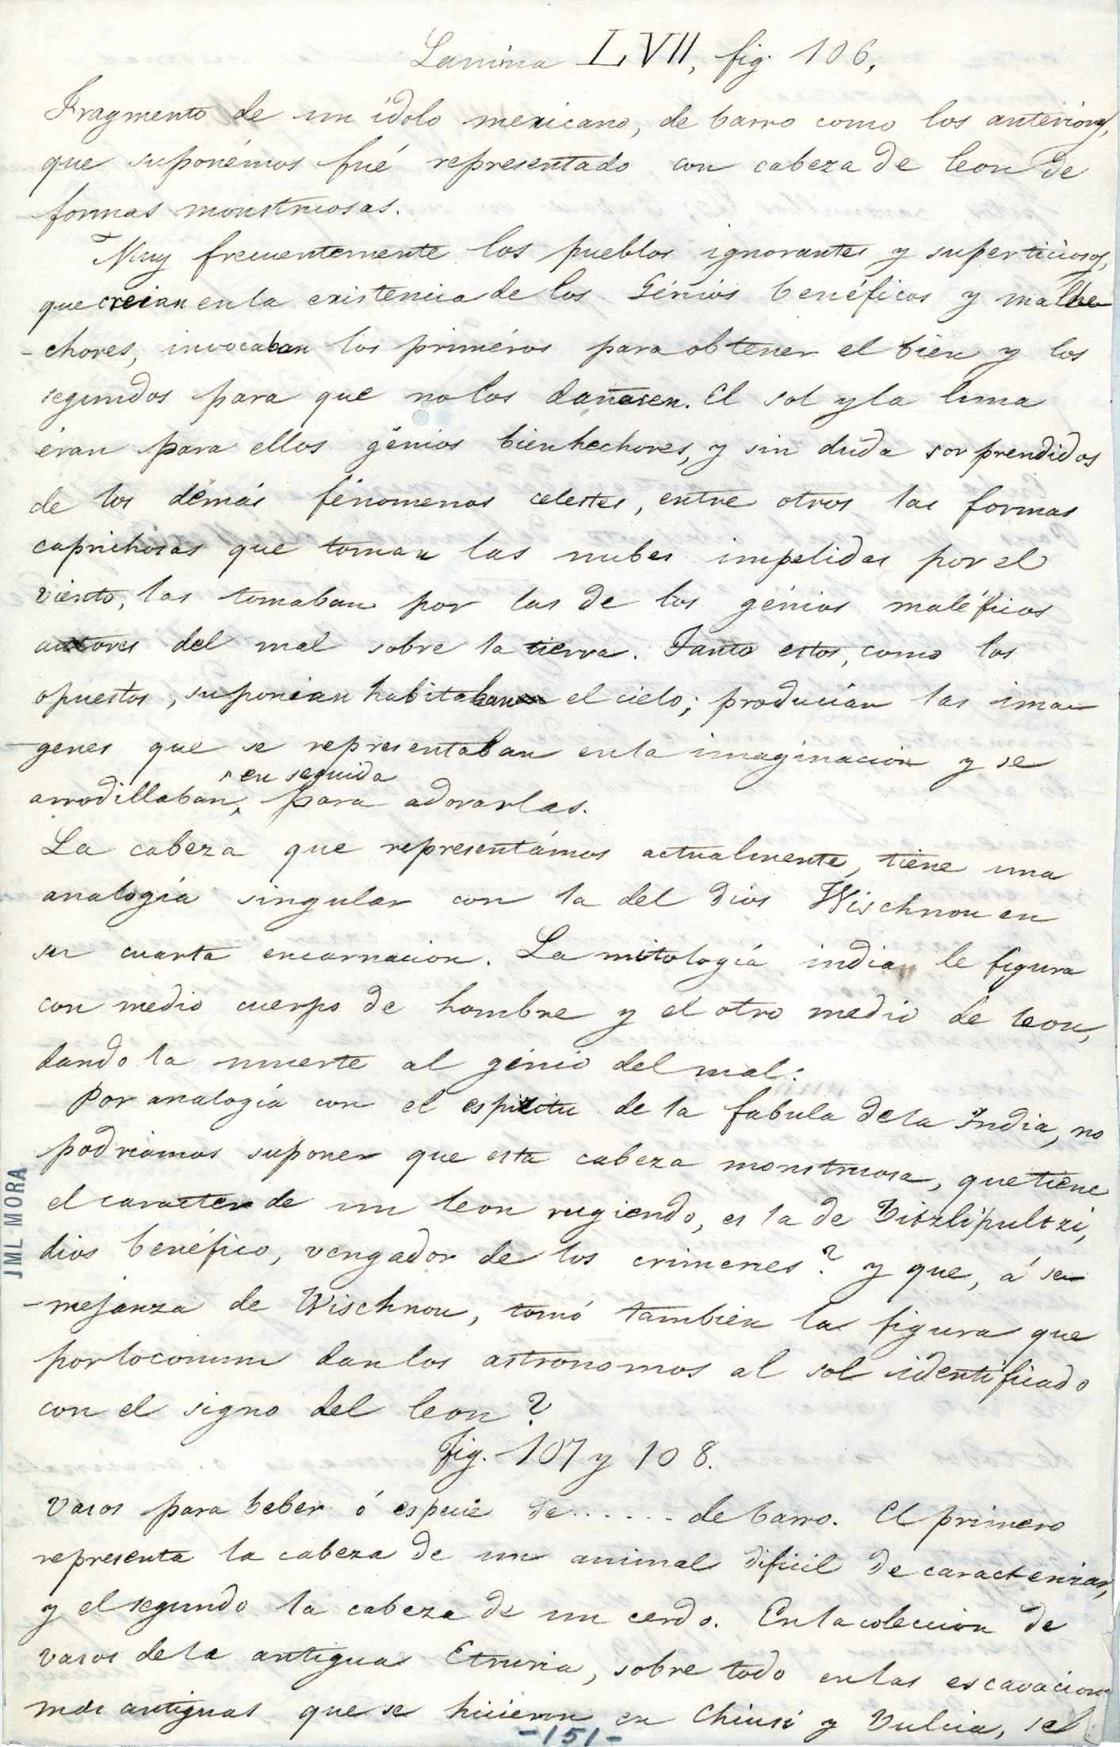 Lamina LVII, fig. 106,
Fragmento de un ídolo mexicano, de barro como los anteriores,
que suponémos fué representado con cabeza de leon de
formas monstruosas.
Muy frecuentemente los pueblos ignorantes y superticiosos,
que creian en la existencia de los Génios benéficos y malhe
-chores, invocaban los priméros para obtener el bien y los
segundos para que no los dañasen. El sol y la luna
éran para ellos génios bienhechores, y sin duda sorprendidos
de los démás fénomenos celestes, entre otros las formas
caprichosas que toman las nubes impelidas por el
viénto, las tomaban por las de los génios maléficos
autores del mal sobre la tierra. Tanto estos, como los
opuestos, suponian habitaban el cielo; producian las ima-
genes que se representaban en la imaginacion y se
, en seguida
arrodillaban, para adorarlas.
La cabeza que representámos actualmente, tiene una
analogía singular con la del dios Wischnou en
su cuarta encarnacion. La mitología india le figura
con medio cuerpo de hombre y el otro medio de leon,
dando la muerte al génio del mal:
Por analogía con el espiritu de la fabula de la India, no
podriamos suponer que esta cabeza monstruosa, que tiene
el caracter de un leon rugiendo, es la de Vitzlipultzi,
dios benéfico, vengador de los crimenes? y que, á se-
-mejanza de Wischnou, tomó tambien la figura que
por lo comun dan los astronomos al sol identificado
con el signo del leon?
Fig. 107 y 108.
Vasos para beber ó especie de ...... de barro. El primero
representa la cabeza de un animal dificil de caracterizar,
y el segundo la cabeza de un cerdo. En la coleccion de
vasos de la antigua Etruria, sobre todo en las escavaciones
mas antiguas que se hicieron en Chiusi y Vulcia, se
-151-
JML MORA